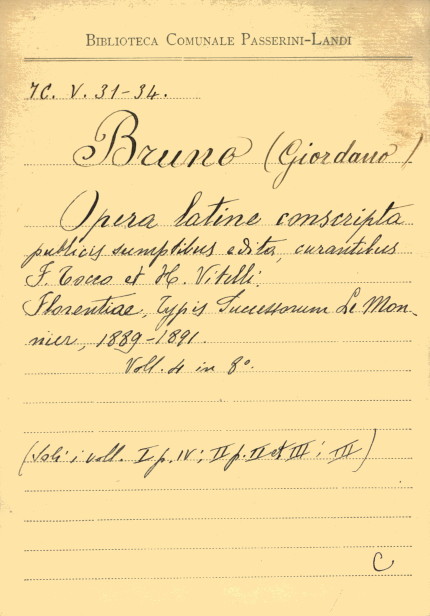 BIBLIOTECA COMUNALE PASSERINI-LANDI
7C. V. 31-34.
Bruno (Giordano)
Opera latine conscripta
publicis sumptibus edita, curantibus
F. Tocco et H. Vitelli.
Florentiae, Typis Successorum Le Mon-
nier, 1889-1891.
Voll. 4 in 8°.
(Soli i voll. I p. IV; II p. II et III; III)
C